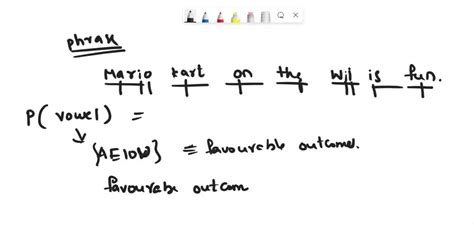 phrase
Mario kart on the Wii is fun.
P(vowel) =
{AEIOU} = favourable outcomes.
favourable outcom